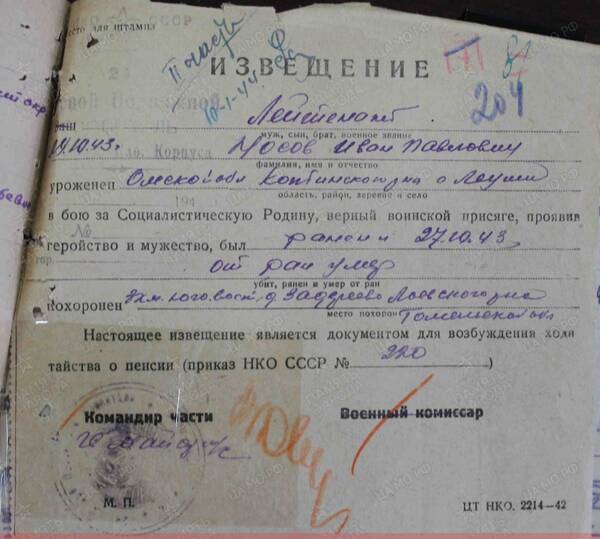 СССР
место для штампа
10-1-44
ИЗВЕЩЕНИЕ
171
204
Ваш Лейтенант
муж, сын, брат, военное звание
14.10.43. Корпуса Носов Иван Павлович
фамилия, имя и отчество
уроженец Омской обл
область, район, деревня и село
194
в бою за Социалистическую Родину, верный воинской присяге, проявив
№
геройство и мужество, был ранен и 27.10.43.
гор.
от ран умер
убит, ранен и умер от ран
похоронен 3 км. юго вост. д Задереево Лоевского р-на
место похорон
Гомельской обл
Настоящее извещение является документом для возбуждения хода
тайства о пенсии (приказ НКО СССР № 220 )
Командир части Военный комиссар
М. П.
ЦТ НКО. 2214—42
ЦАМО.РФ